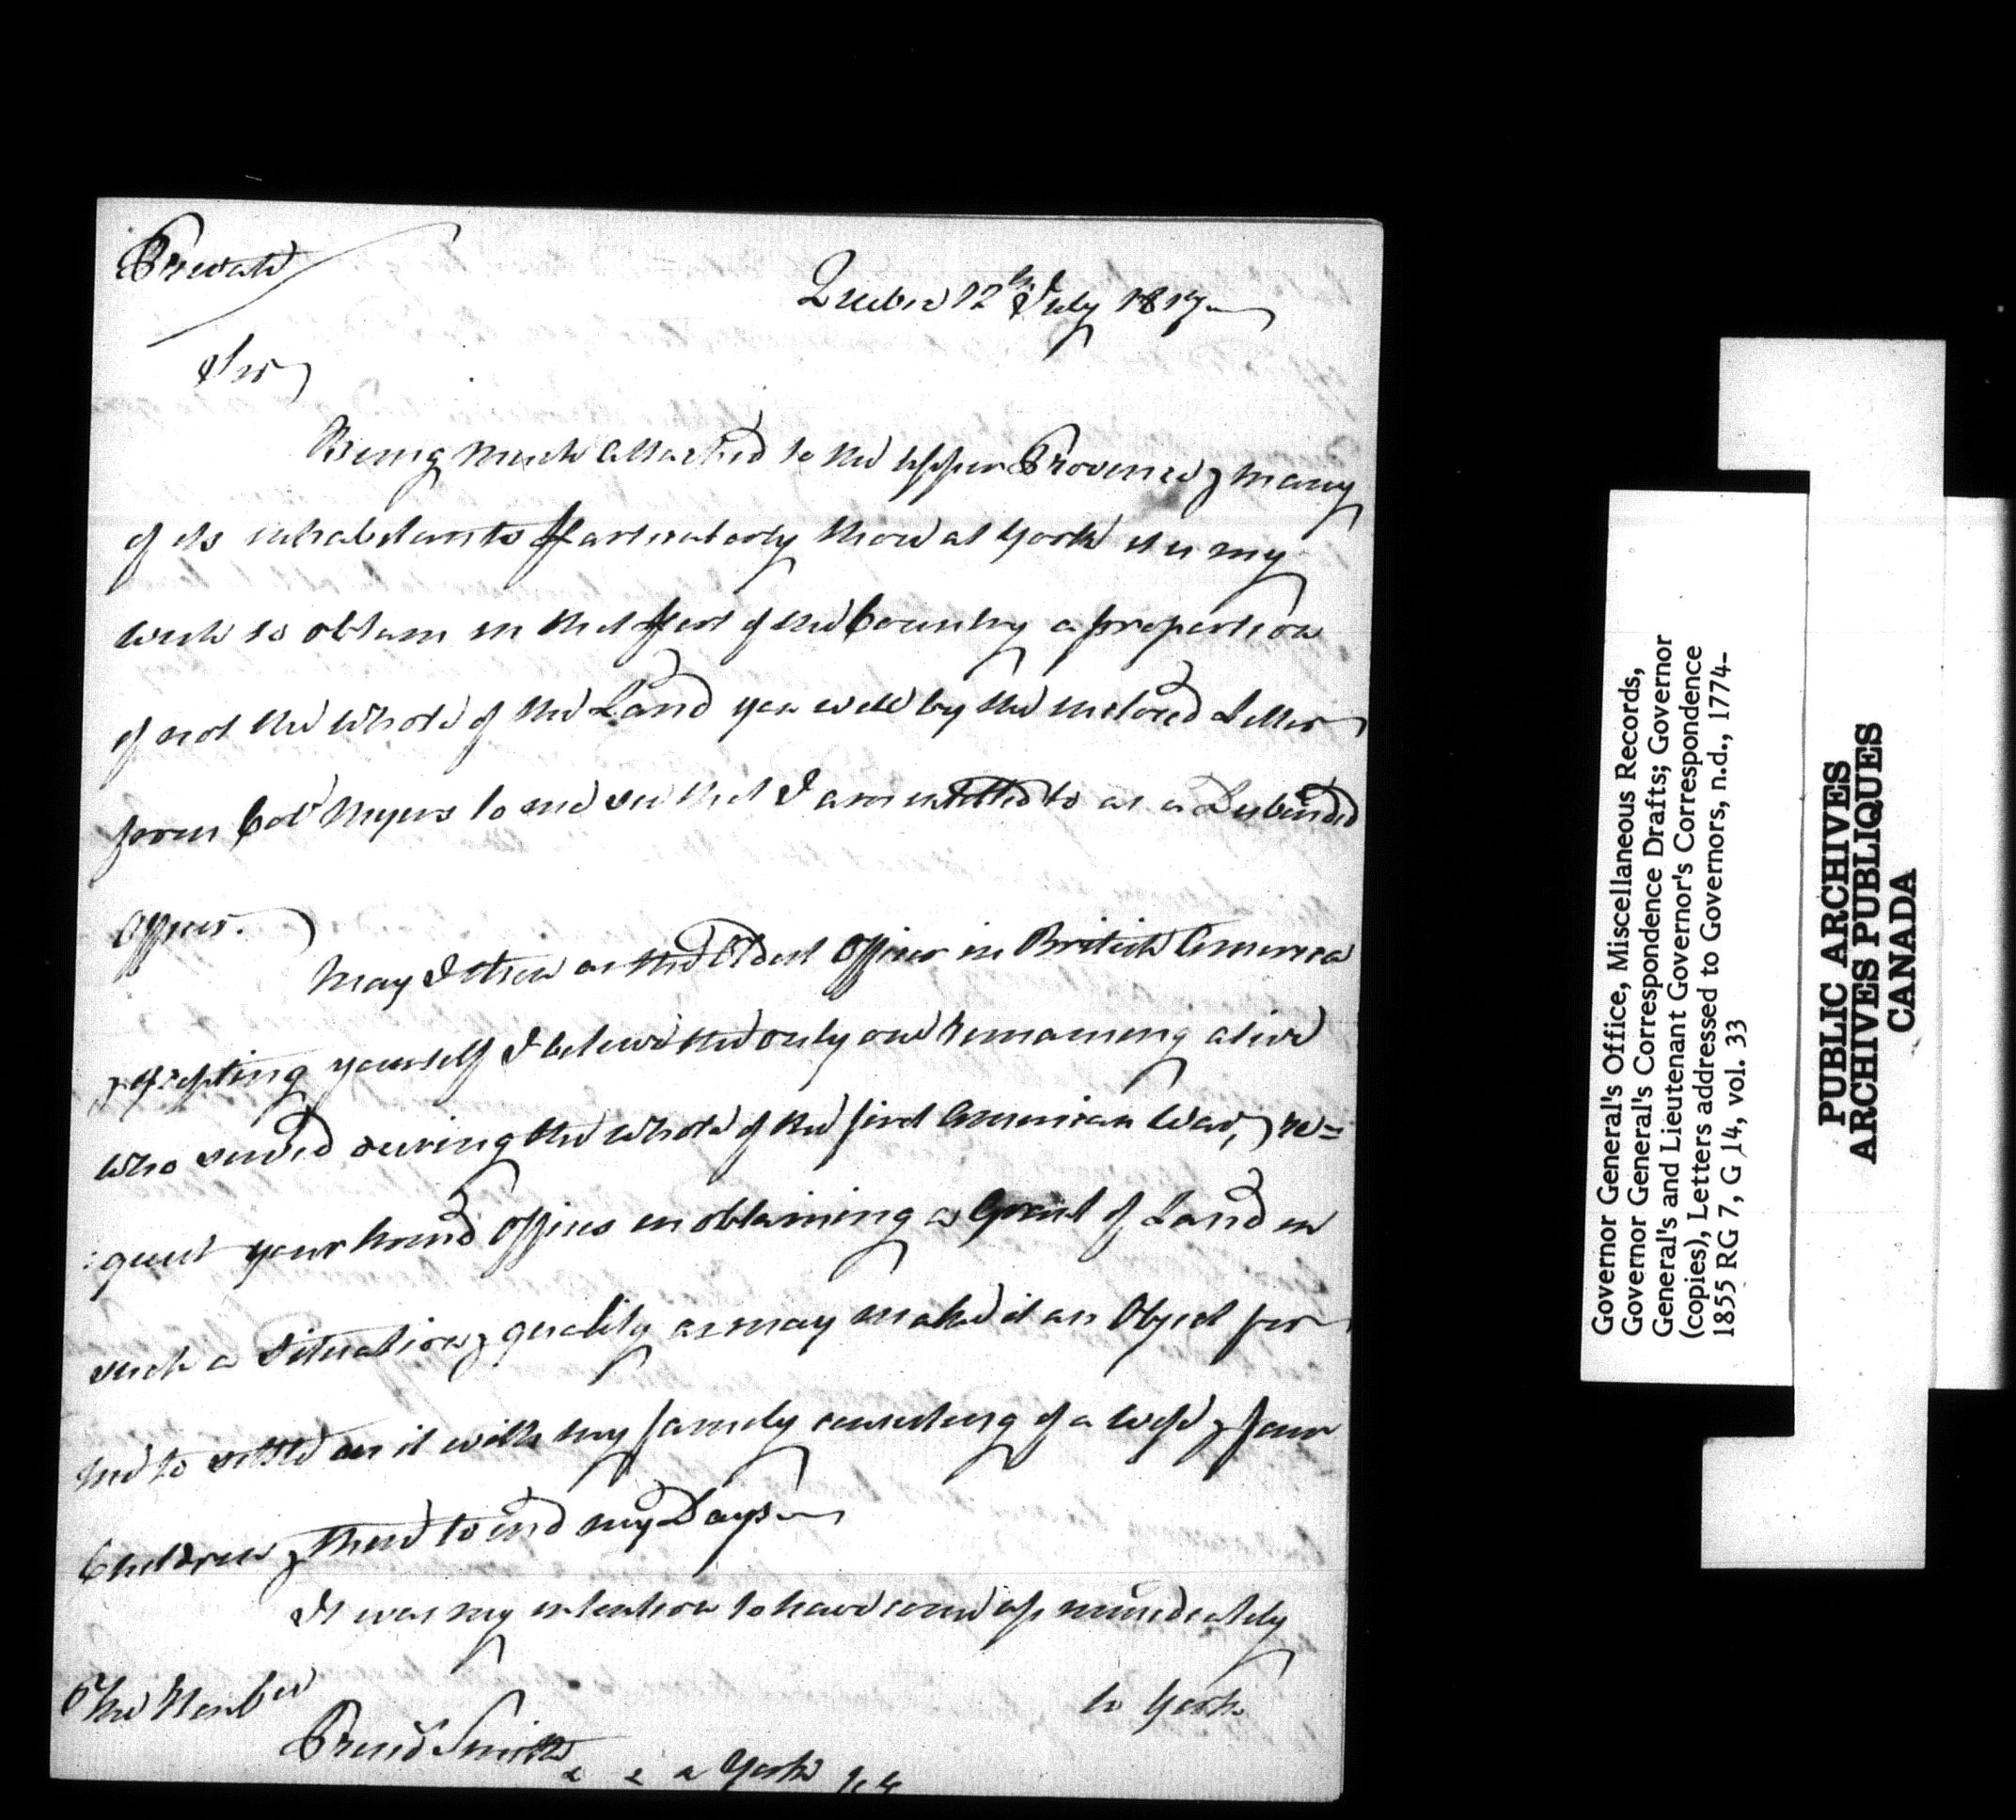 Private
Quebec 12th July 1817
Sir
Being much attached to the upper Province & many
of its inhabitants particularly those at York it is my
wish to obtain in that part of the Country a proportion
if not the whole of the Land you will by the inclosed Letter
from Col. Myers to me see that I am entitled to as a Disbanded
Officer.
May I then as the Oldest Officer in British America
& excepting yourself I believe the only one remaining alive
who served during the whole of the first American War, & re=
:quest your kind offices in obtaining a Grant of Land in
such a situation & quality as may make it an Object for
me to settle on it with my family consisting of a wife & four
Children & there to end my Days
It was my intention to have come up immediately
to York
The Honble
Presid Smith
York
Governor General's Office, Miscellaneous Records,
Governor General's Correspondence Drafts; Governor
General's and Lieutenant Governor's Correspondence
(copies), Letters addressed to Governors, n.d., 1774-
1855 RG 7, G 14, vol. 33
PUBLIC ARCHIVES
ARCHIVES PUBLIQUES
CANADA